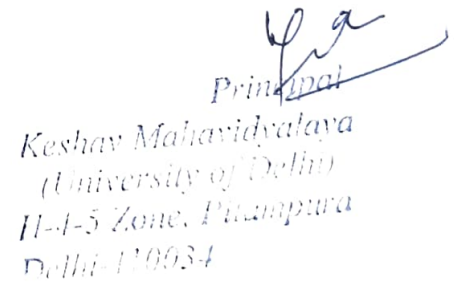 Principal
Keshav Mahavidyalaya
(University of Delhi)
H-4-5 Zone, Pitampura
Delhi-110034